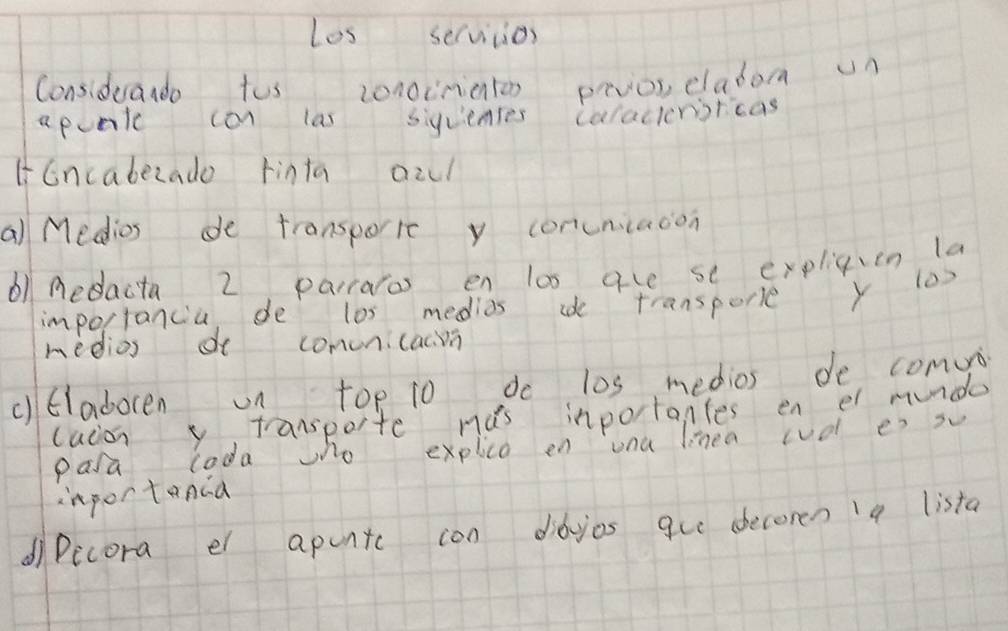 Los servicios
Considerando tus conocimientos previos, elabora un
apunte con las siguientes características
Encabezado tinta azul
a) Medios de transporte y comunicacion
b) Redacta 2 parraros en los que se expliquen la
importancia de los medios de transporte y los
medios de comunicación
c) Elaboren un top 10 de los medios de comuni
cacion y transporte más inportantes en el mundo
para cada uno explico en una linea cual es su
inportancia
d) Decora el apunte con dibujos que decoren la lista